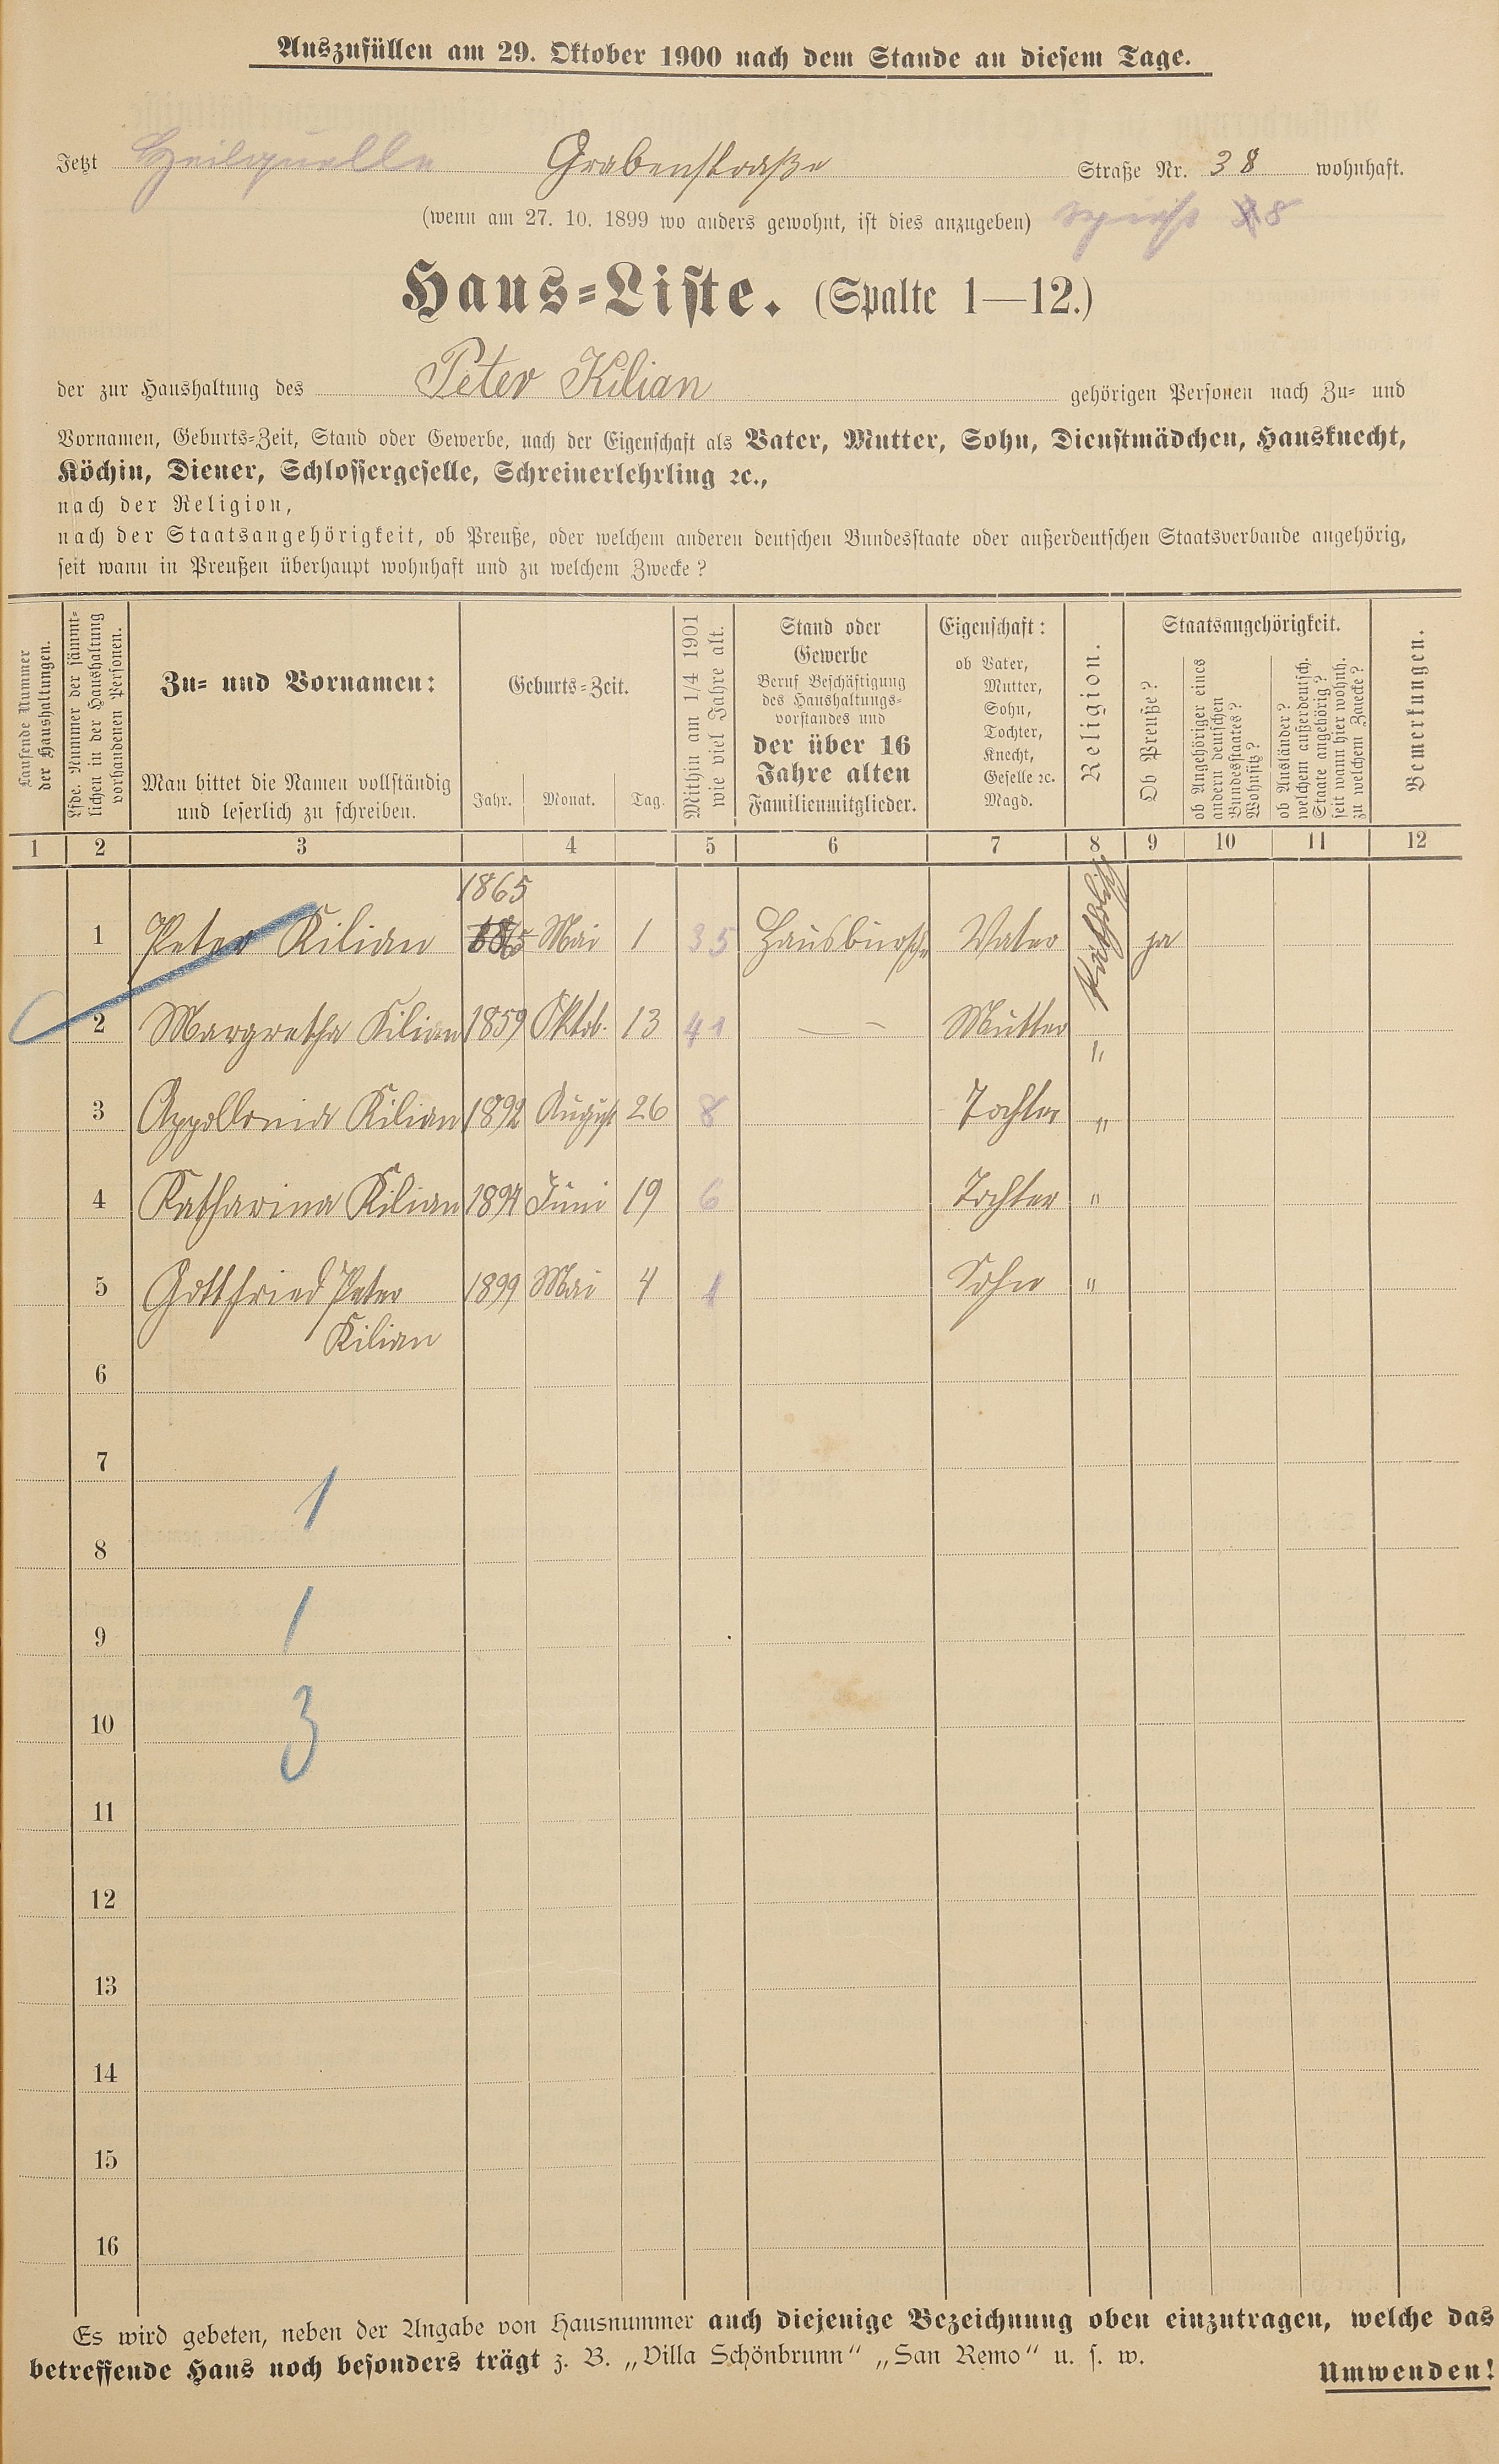 Auszufüllen am 29. Oktober 1900 nach dem Stande an diesem Tage.
Jetzt Heilquelle Grabenstraße Straße Nr. 38 wohnhaft.
(wenn am 27. 10. 1899 wo anders gewohnt, ist dies anzugeben) 8
Haus-Liste. (Spalte 1—12.)
der zur Haushaltung des Peter Kilian gehörigen Personen nach Zu- und
Vornamen, Geburts-Zeit, Stand oder Gewerbe, nach der Eigenschaft als Vater, Mutter, Sohn, Dienstmädchen, Hausknecht,
Köchin, Diener, Schlossergeselle, Schreinerlehrling ꝛc.,
nach der Religion,
nach der Staatsangehörigkeit, ob Preuße, oder welchem anderen deutschen Bundesstaate oder außerdeutschen Staatsverbande angehörig,
seit wann in Preußen überhaupt wohnhaft und zu welchem Zwecke?
Laufende Nummer
der Haushaltungen.
Lfde. Nummer der sämmt-
lichen in der Haushaltung
vorhandenen Personen.
Zu- und Vornamen:
Man bittet die Namen vollständig
und leserlich zu schreiben.
Geburts-Zeit.
Jahr. Monat. Tag.
Mithin am 1/4 1901
wie viel Jahre alt.
Stand oder
Gewerbe
Beruf Beschäftigung
des Haushaltungs-
vorstandes und
der über 16
Jahre alten
Familienmitglieder.
Eigenschaft:
ob Vater,
Mutter,
Sohn,
Tochter,
Knecht,
Geselle ꝛc.
Magd.
Religion.
Staatsangehörigkeit.
Ob Preuße?
ob Angehöriger eines
andern deutschen
Bundesstaates?
Wohnsitz?
ob Ausländer?
welchem außerdeutsch.
Staate angehörig?
seit wann hier wohnh.
zu welchem Zwecke?
Bemerkungen.
1 2 3 4 5 6 7 8 9 10 11 12
1865
1 Peter Kilian 1865 Mai 1 35 Hausbursche Vater katholisch ja
2 Margretha Kilian 1859 Oktob. 13 41 — Mutter "
3 Appollonia Kilian 1892 August 26 8 Tochter "
4 Katharina Kilian 1894 Juni 19 6 Tochter "
5 Gottfried Peter 1899 Mai 4 1 Sohn "
Kilian
6
7
1
8
1
9
3
10
11
12
13
14
15
16
Es wird gebeten, neben der Angabe von Hausnummer auch diejenige Bezeichnung oben einzutragen, welche das
betreffende Haus noch besonders trägt z. B. „Villa Schönbrunn“ „San Remo“ u. s. w.
Umwenden!